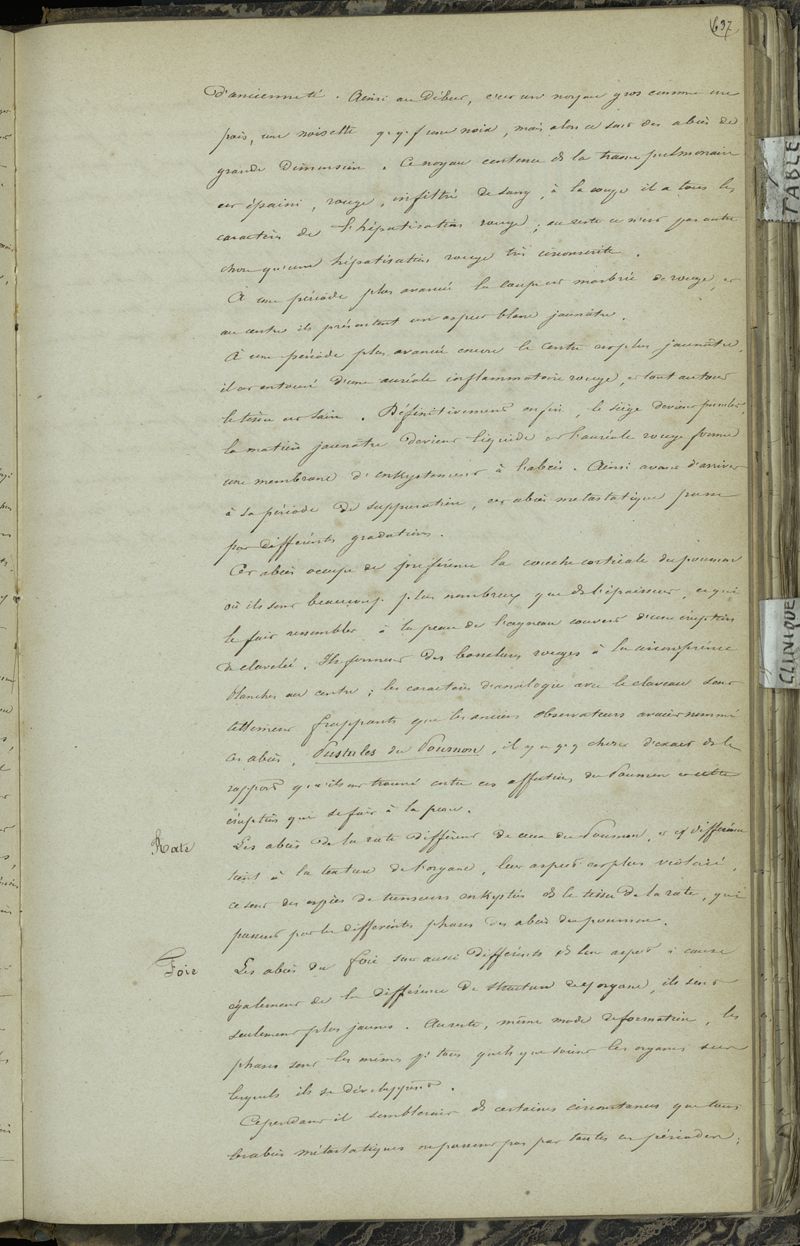 637
d'ancienneté. Ainsi au début, c'est un noyau gros comme un
pois, une noisette qqf une noix, mais alors ce sont des abcès de
grande dimension. Ce noyau contenu ds la trame pulmonaire
est épaissi, rouge, infiltré de sang, à la coupe il a tous les
caractères de l'hépatisation rouge; au reste ce n'est pas autre
chose qu'une hépatisation rouge très circonscrite.
À une période plus avancée la coupe est marbrée de rouge, et
au centre ils présentent un aspect blanc jaunâtre.
À une période plus avancée encore le centre est plus jaunâtre,
il est entouré d'une auréole inflammatoire rouge, et tout autour
le tissu est sain. Définitivement enfin, le siège devient purulent,
la matière jaunâtre devient liquide et l'auréole rouge forme
une membrane d'enkystement à l'abcès. Ainsi avant d'arriver
à sa période de suppuration, cet abcès métastatique passe
par différents gradations.
Ces abcès occupe de préférence la couche corticale du poumon
où ils sont beaucoup plus nombreux que ds l'épaisseur, ce qui
le fait ressembler à la peau de l'agneau couvert d'une éruption
de clavelée. Ils forment des bosselures rouges à la circonférence
blanches au centre; les caractères d'analogie avec le claveau sont
tellement frappants que les anciens observateurs avaient nommé
ces abcès, Pustules du Poumon, il y a qq chose d'exact ds le
rapport qu'ils ont trouvé entre ces affections du Poumon et cette
éruption qui se fait à la peau.
Rate
Les abcès de la rate diffèrent de ceux du Poumon, et cette différence
tient à la texture de l'organe, leur aspect est plus violacé,
ce sont des espèces de tumeurs enkystées ds le tissu de la rate, qui
passent par les différentes phases des abcès du poumon.
Foie
Les abcès du foie sont aussi différents ds leur aspect à cause
également de la différence de structure de l'organe, ils sont
seulement plus jaunes. Au reste, même mode de formation, les
phases sont les mêmes pr tous quels que soient les organes sur
lesquels ils se développent.
Cependant il semblerait ds certaines circonstances que tous
les abcès métastatiques ne passent pas par toutes ces périodes;
TABLE
CLINIQUE